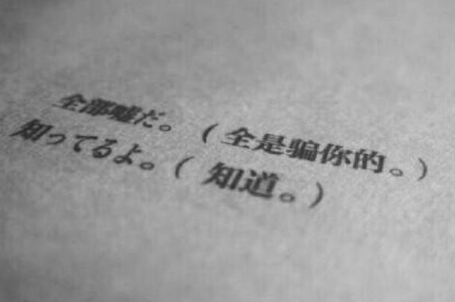 全部嘘だ。(全是骗你的。)
知ってるよ。(知道。)